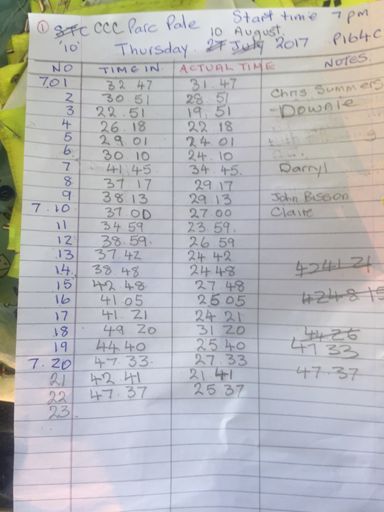 ① STC CCC Parc Pale Start time 7 pm
'10' Thursday 27 July 10 August 2017 P164C
NO TIME IN ACTUAL TIME NOTES
7.01 32 47 31.47
2 30 51 28 51 Chris Summers
3 22.51 19.51 Downie
4 26.18 22 18
5 29 01 24 01
6 30 10 24.10
7 41.45 34 45. Darryl
8 37 17 29 17
9 38 13 29 13 John Bisson
7.10 37 00 27 00 Claire
11 34 59 23 59.
12 38.59. 26 59
13 37 42 24 42
14 38.48 24 48 4241 21
15 42 48 27 48
16 41 05 25 05 4248 15
17 41 21 24 21
18 49 20 31 20 4426
19 44 40 25 40 47 33
7.20 47.33. 27.33
21 42 41 21 41 47.37
22 47.37 25 37
23